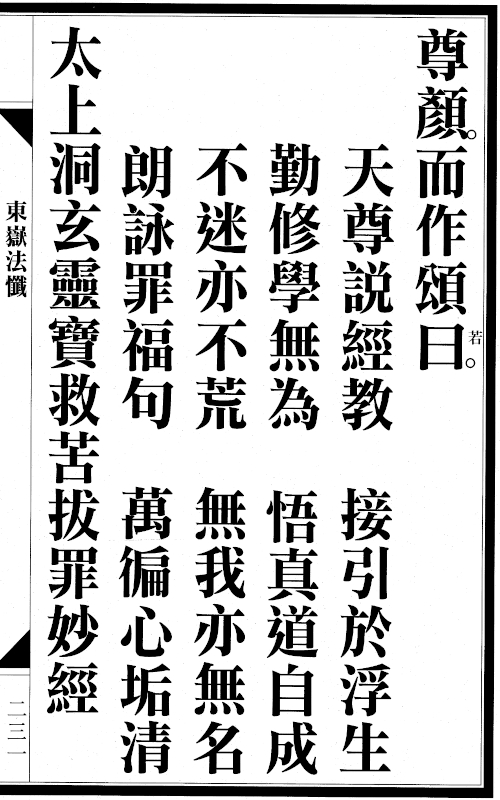 尊顏。而作頌曰。若
天尊説經教　接引於浮生
勤修學無為　悟真道自成
不迷亦不荒　無我亦無名
朗詠罪福句　萬徧心垢清
太上洞玄靈寶救苦拔罪妙經
東嶽法懺
二三一